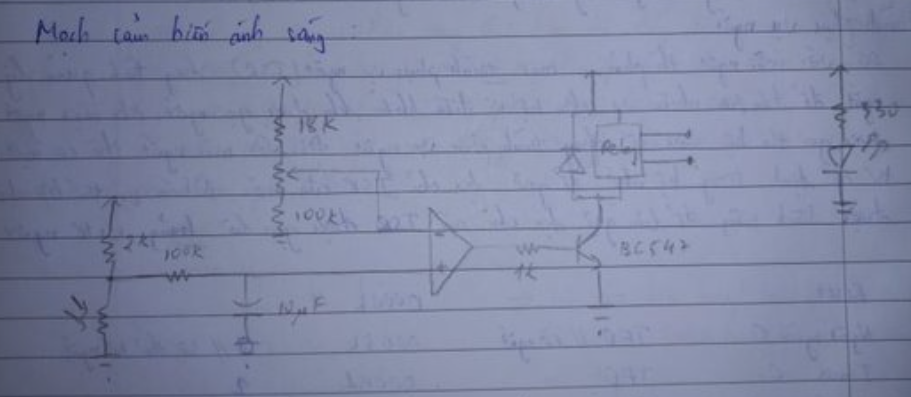 Mạch cảm biến ánh sáng :
18K
100K
2K
100K
-
+
1K
Relay
BC547
330